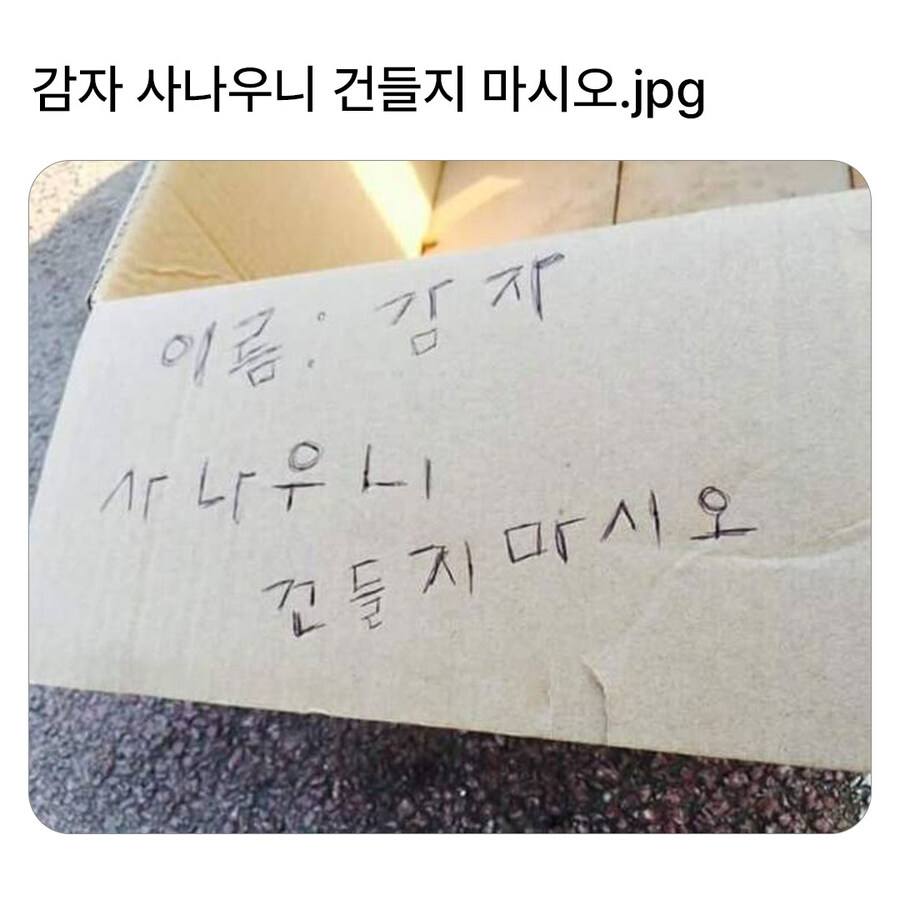 감자 사나우니 건들지 마시오.jpg
이름: 감자
사나우니
건들지 마시오